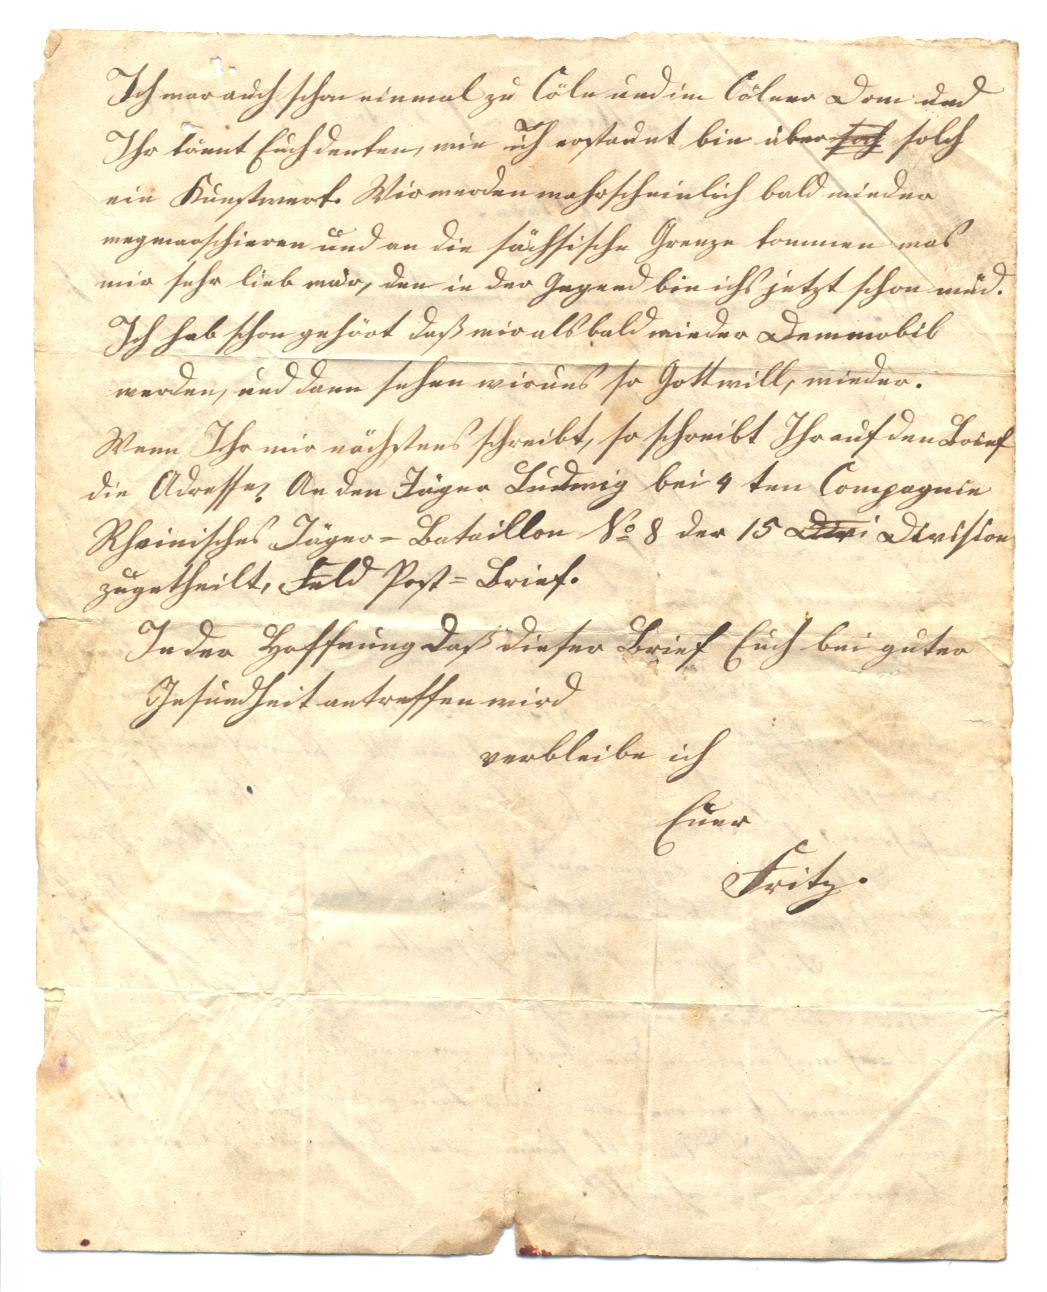 Ich war auch schon einmal zu Cöln und im Cölner Dom und
Ihr könnt Euch denken, wie ich erstaunt bin über solch
ein Kunstwerk. Wir werden wahrscheinlich bald wieder
wegmarschieren und an die sächsische Grenze kommen was
mir sehr lieb wär, den in der Gegend bin ichs jetzt schon müd.
Ich hab schon gehört daß wir als bald wieder Demmobil
werden, und dann sehen wir uns so Gott will, wieder.
Wenn Ihr mir nächstens schreibt, so schreibt Ihr auf den Brief
die Adresse, An den Jäger Ludwig bei 4 ten Compagnie
Rheinisches Jäger=Bataillon No 8 der 15 Division
zugetheilt, Feld Post=Brief.
In der Hoffnung daß dieser Brief Euch bei guter
Gesundheit antreffen wird
verbleibe ich
Euer
Fritz.